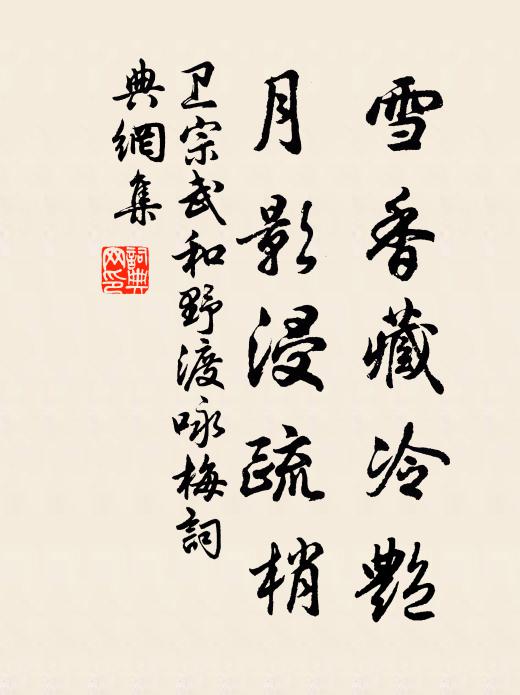 雪香藏冷艷
月影浸疏梢
卫宗武和野渡咏梅詞
典網集
詞典
网印